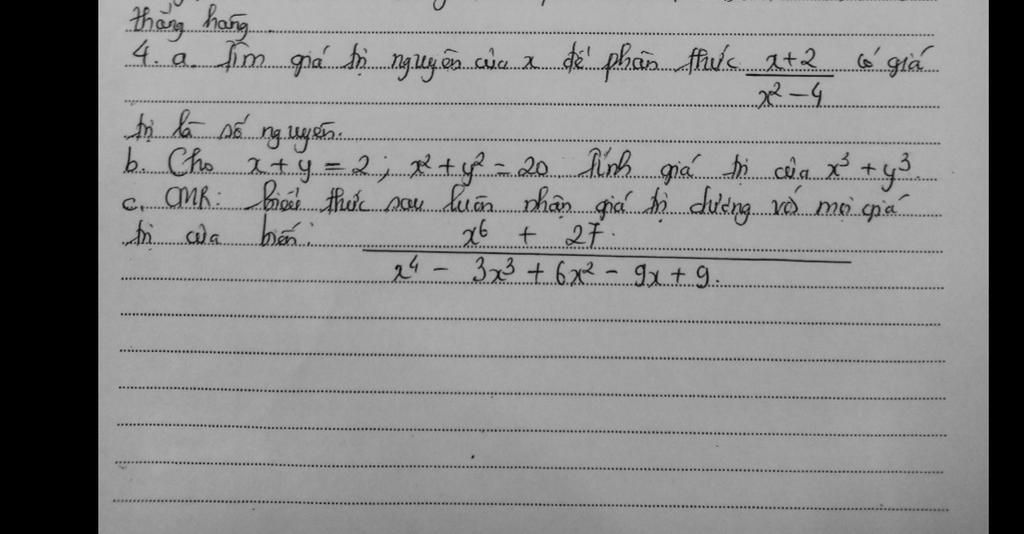 thẳng hàng.
4. a. Tìm giá trị nguyên của x để phân thức \frac{x+2}{x² - 4} có giá
trị là số nguyên.
b. Cho x + y = 2; x² + y² = 20 Tính giá trị của x³ + y³.
c. CMR: biểu thức sau luôn nhận giá trị dương với mọi giá
trị của biến: \frac{x⁶ + 27.}{x⁴ - 3x³ + 6x² - 9x + 9.}